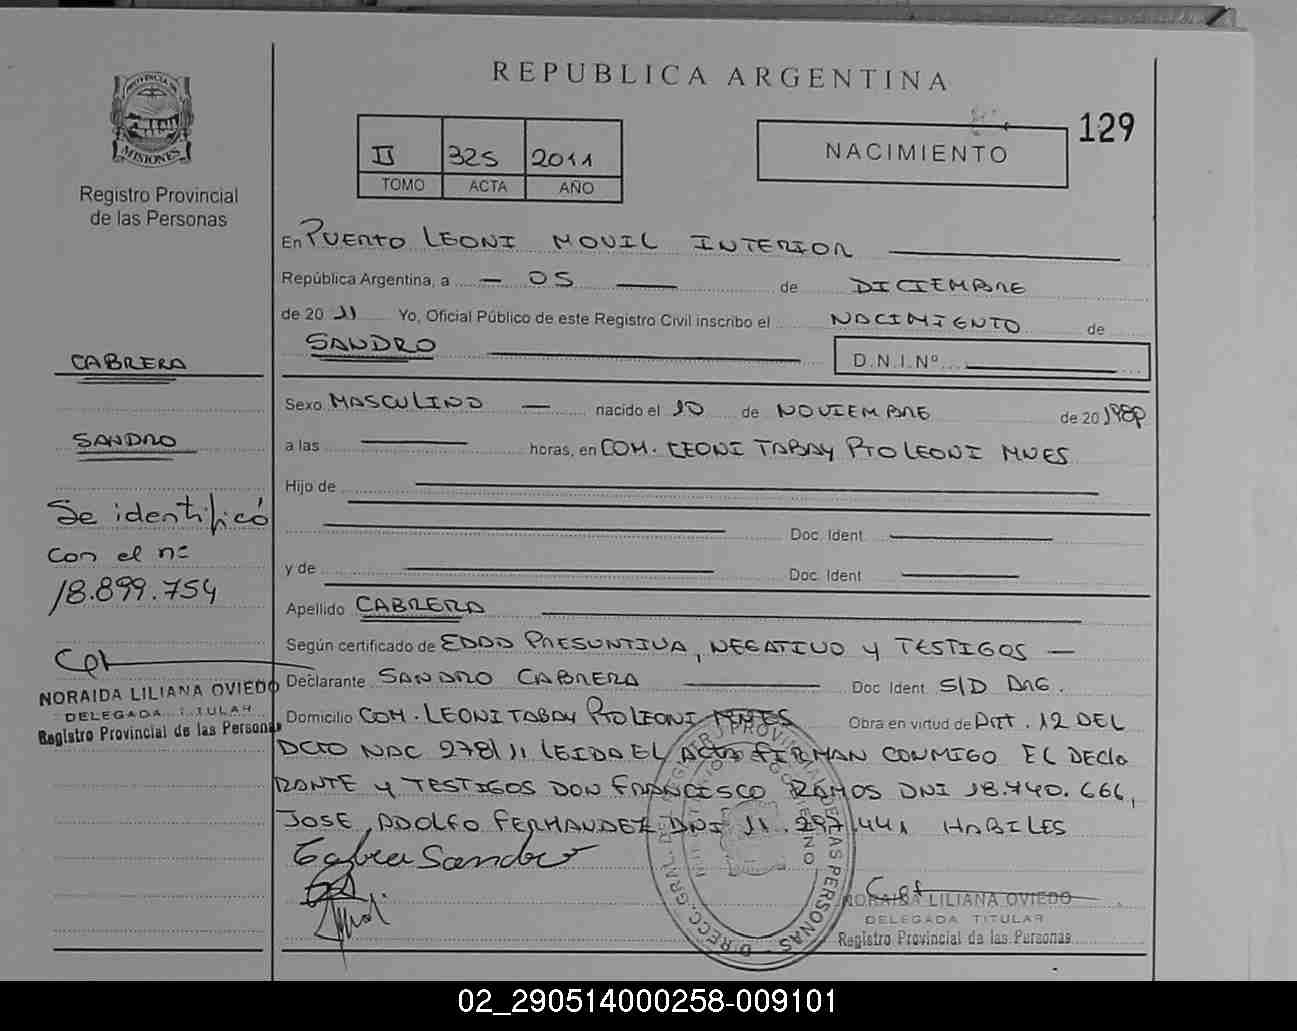 REPUBLICA ARGENTINA
129
PROVINCIA DE
MISIONES
Registro Provincial
de las Personas
II 325 2011
TOMO ACTA AÑO
NACIMIENTO
En PUERTO LEONI MOVIL INTERIOR
República Argentina, a — 05 de DICIEMBRE
de 20 11 Yo, Oficial Público de este Registro Civil inscribo el NACIMIENTO de
SANDRO
D.N.I.Nº
CABRERA
SANDRO
Se identificó
con el nº
18.899.754
NORAIDA LILIANA OVIEDO
DELEGADA TITULAR
Registro Provincial de las Personas
Sexo MASCULINO — nacido el 10 de NOVIEMBRE de 20 1989
a las horas, en COM. LEONI TABAY PTO LEONI MNES
Hijo de
Doc. Ident.
y de
Doc. Ident.
Apellido CABRERA
Según certificado de EDAD PRESUNTIVA, NEGATIVO Y TESTIGOS —
Declarante SANDRO CABRERA Doc Ident. S/D ARG.
Domicilio COM. LEONI TABAY PTO LEONI MNES Obra en virtud de ART. 12 DEL
DCTO NAC 278/11 LEIDA EL ACTA FIRMAN CONMIGO EL DECLA
RANTE Y TESTIGOS DON FRANCISCO RAMOS DNI 18.440.666,
JOSE ADOLFO FERNANDEZ DNI 11.297.441 HABILES
Cabrea Sandro
DIRECC. GRAL. DEL REGISTRO PROVINCIAL DE LAS PERSONAS
NORAIDA LILIANA OVIEDO
DELEGADA TITULAR
Registro Provincial de las Personas
02_290514000258-009101